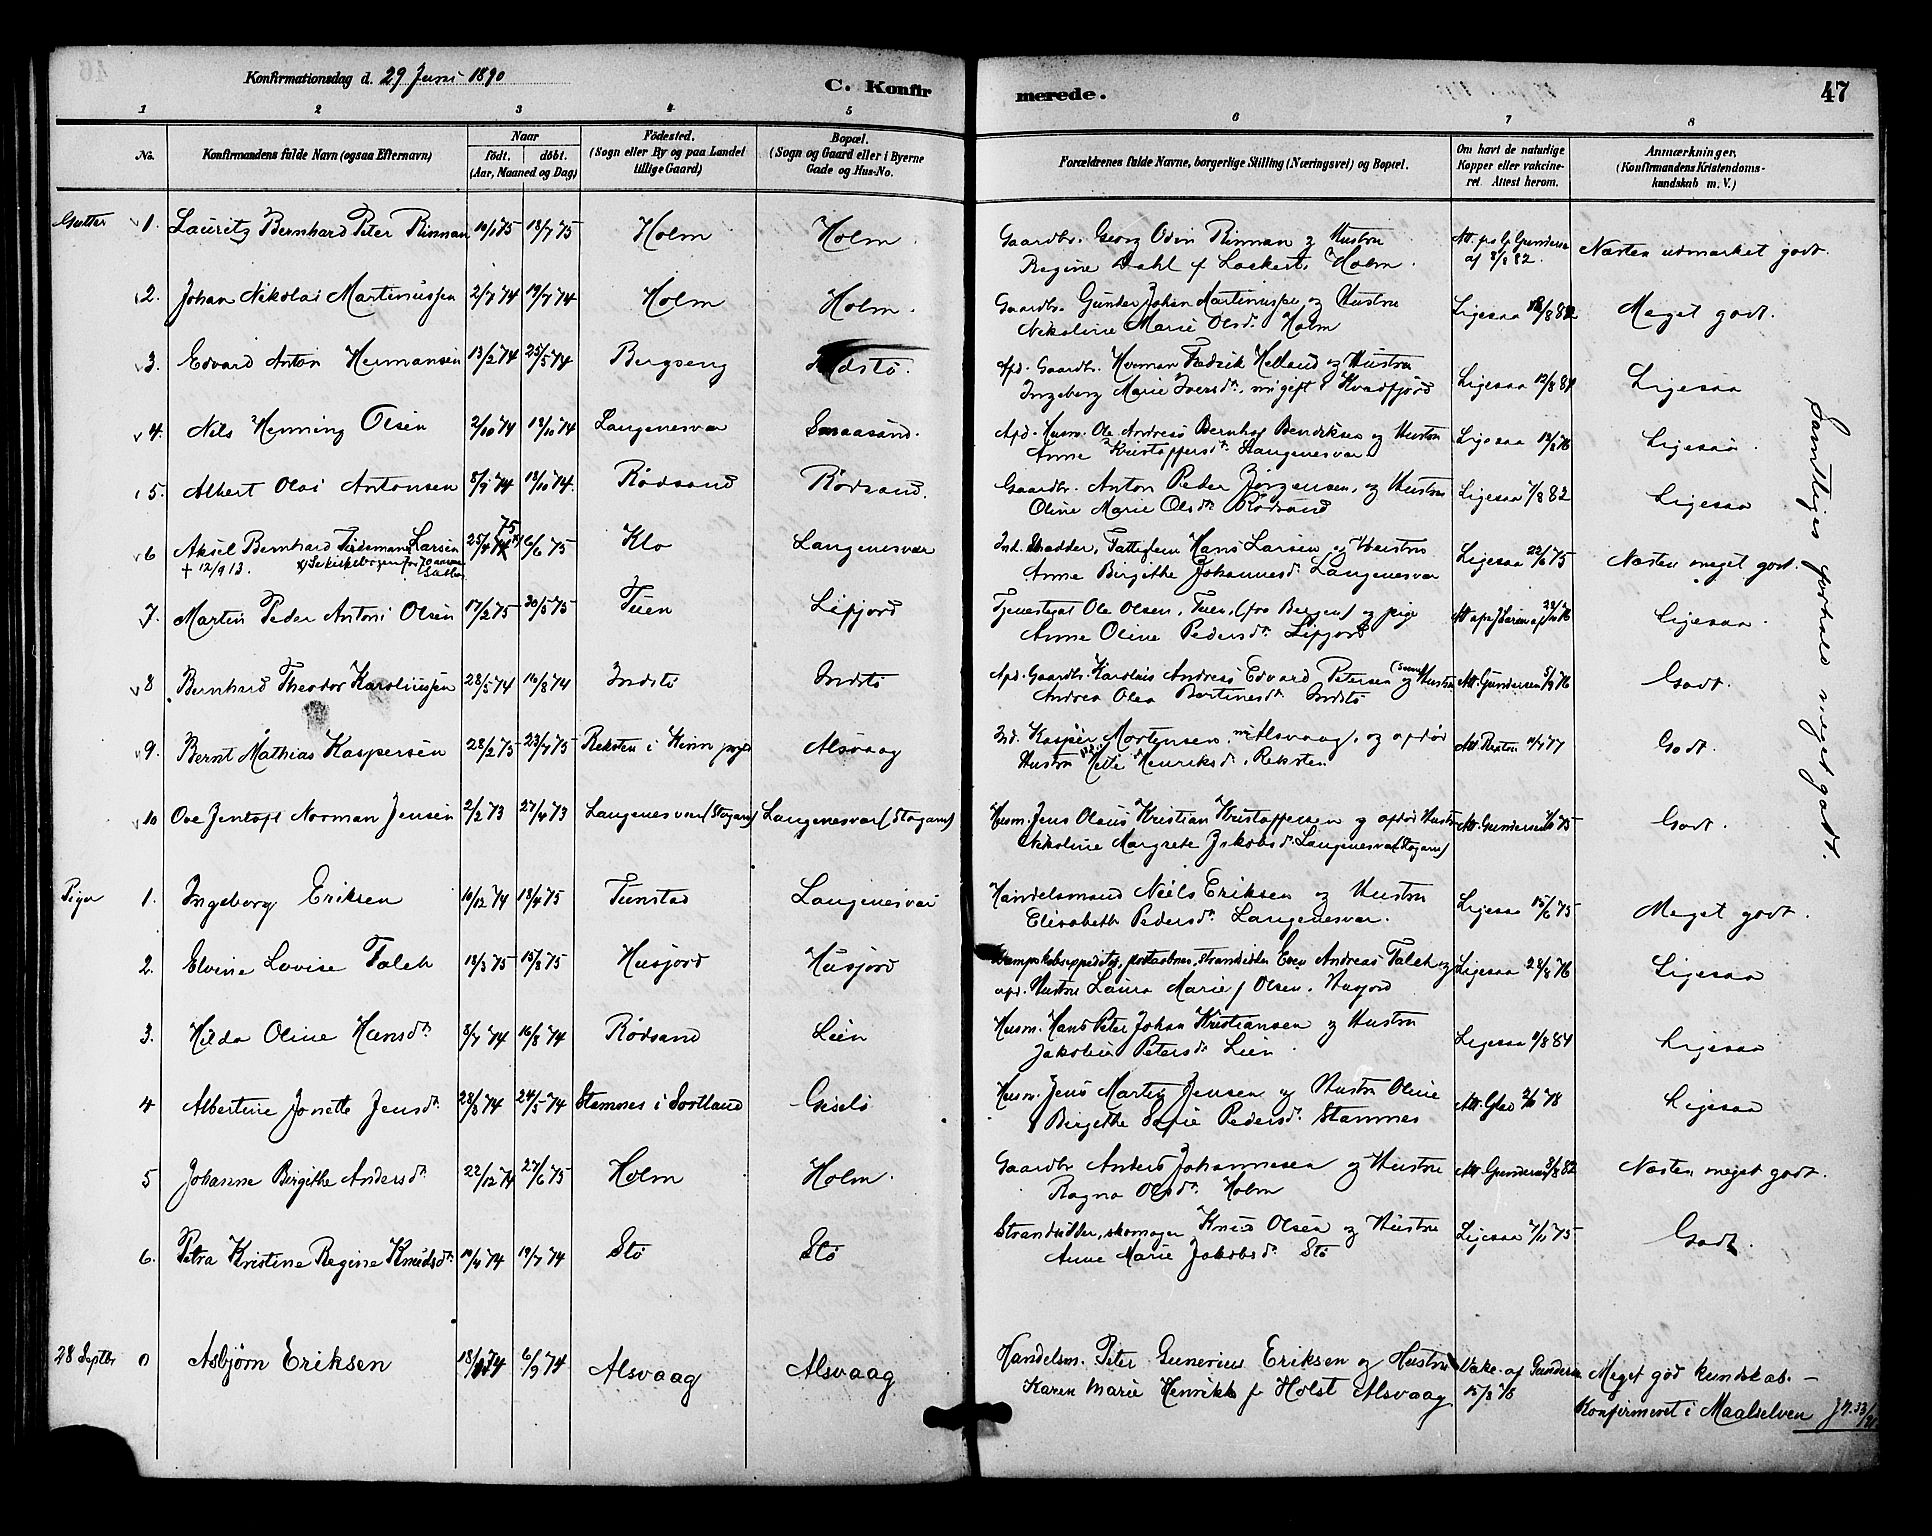 Konfirmationsdag d. 29 Juni 1890
C. Konfir
merede.
47
1 2 3 4 5 6 7 8
No.
Konfirmandens fulde Navn (ogsaa Efternavn)
Naar
födt. döbt.
(Aar, Maaned og Dag)
Födested.
(Sogn eller By og paa Landet
tillige Gaard)
Bopæl.
(Sogn og Gaard eller i Byerne
Gade og Hus-No.
Forældrenes fulde Navne, borgerlige Stilling (Næringsvei) og Bopæl.
Om havt de naturlige
Kopper eller vakcine-
ret. Attest herom.
Anmærkninger,
(Konfirmandens Kristendoms-
kundskab m. V.)
Gutter 1. Lauritz Bernhard Peter Rinnan 18/7 75 Holm Holm
Gaardbr. Georg Odin Rinnan og Hustru
Regine Dahl f Lockert, Holm.
af 8/8 82.
Næsten udmærket godt.
2. Johan Nikolai Martinussen 2/7 74 19/7 74 Holm Holm.
Gaardbr. Gunder Johan Martinussen og Hustru
Nikoline Marie Olsd. Holm
Ligesaa
Meget godt.
3. Edvard Anton Hermansen 13/2 74 25/5 74 Bergseng
Afd. Gaardbr. Herman Fredrik Helland og Hustru
Ingeborg Marie Iversdr. nu gift i Kvædfjord
Ligesaa
Ligesaa
4. Nils Henning Olsen 2/10 74 18/10 74 Langenesvær Smaasund.
Afd. Husm. Ole Andreas Bernhof Bendiksen og Hustru
Anne Kristoffersdr. Langenesvær
Ligesaa
Ligesaa.
5. Albert Olai Antonsen 8/9 74 18/10 74. Rödsand Rödsand.
Gaardbr. Anton Peder Jörgensen, og Hustru
Oline Marie Olsdr. Rödsand
Ligesaa 7/8 82
Ligesaa
6 Aksel Bernhard Tidemand Larsen 75 6/6 75 Klo Langenesvær
† 12/9 13.
Ind. Stadder, Fattiglem Hans Larsen og Hustru
Anne Birgithe Johannesd. Langenesvær
Ligesaa 22/6 75
Næsten meget godt.
7. Martin Peder Antoni Olsen 17/2 75 30/5 75 Tuen Lifjord
Tjenestegut Ole Olsen, Tuen, (fra Bergen) og pige
Anne Oline Pedersdr. Lifjord
Ligesaa.
8 Bernhard Theodor Karoliussen 28/5 74 16/8 74 Indstö Indstö
Afd. Gaardbr. Karolius Andreas Edvard Petersen og Hustru
Andrea Olea Bartinesdr. Indstö
Att. Gundersen 5/9 76
Godt.
9. Bernt Mathias Kaspersen 28/2 75 23/7 75 Reksten i Kinn pgd Alsvaag
Ind. Kasper Mortensen, Alsvaag, og afdöd
Hustru Mette Henriksd. Reksten
Godt.
10 Ove Jentoft Norman Jensen 2/2 73 27/4 73 Langenesvær (Stagarn) Langenesvær (Stagarn)
Husm. Jens Olaus Kristian Kristoffersen og afdöd Hustru
Nikoline Margrete Jakobsd. Langenesvær (Stagarn)
Godt.
Piger 1. Ingeborg Eriksen 16/12 74 18/4 75 Tunstad Langenesvær
Handelsmand Neils Eriksen og Hustru
Elisabeth Pedersdr. Langenesvær.
Ligesaa 15/6 75
Meget godt.
2. Elvine Lovise Falch 18/3 75 15/8 75 Husjord Husjord
Dampskibsexpeditör, postaabner, strandsidder Even Andreas Falch og
afd. Hustru Laura Marie f Olsen. Husjord
Ligesaa
Ligesaa
3. Hilda Oline Hansdr. 8/7 74 16/8 74 Rödsand Lien
Husm. Hans Peter Johan Kristiansen og Hustru
Jakobine Petersdr. Lien.
Ligesaa
Ligesaa
4 Albertine Jonette Jensdr. 28/3 74 24/5 74 Stamnes i Sortland Gislö
Husm. Jens Martin Jensen og Hustru Oline
Birgithe Sofie Pedersdr. Stamnes
Ligesaa
5 Johanne Birgithe Andersdr. 22/12 74 27/6 75 Holm Holm.
Gaardbr Anders Johannesen og Hustru
Ragna Olsdr. Holm
Att. Gundersen 8/8 82
Næsten meget godt.
6. Petra Kristine Regine Knudsdr. 19/7 74 Stö Stö
Strandsidder, skomager Knud Olsen og Hustru
Anne Marie Jakobsdr. Stö
Ligesaa
Godt.
Samtliges forhold meget godt.
28 Septbr 0 Asbjørn Eriksen 6/9 74 Alsvaag Alsvaag
Handelsm. Peter Gunerius Eriksen og Hustru
Karen Marie Henrikke f Holst Alsvaag
Vakc. af Gundersen
Meget god kundskab. –
Konfirmeret i Maalselven